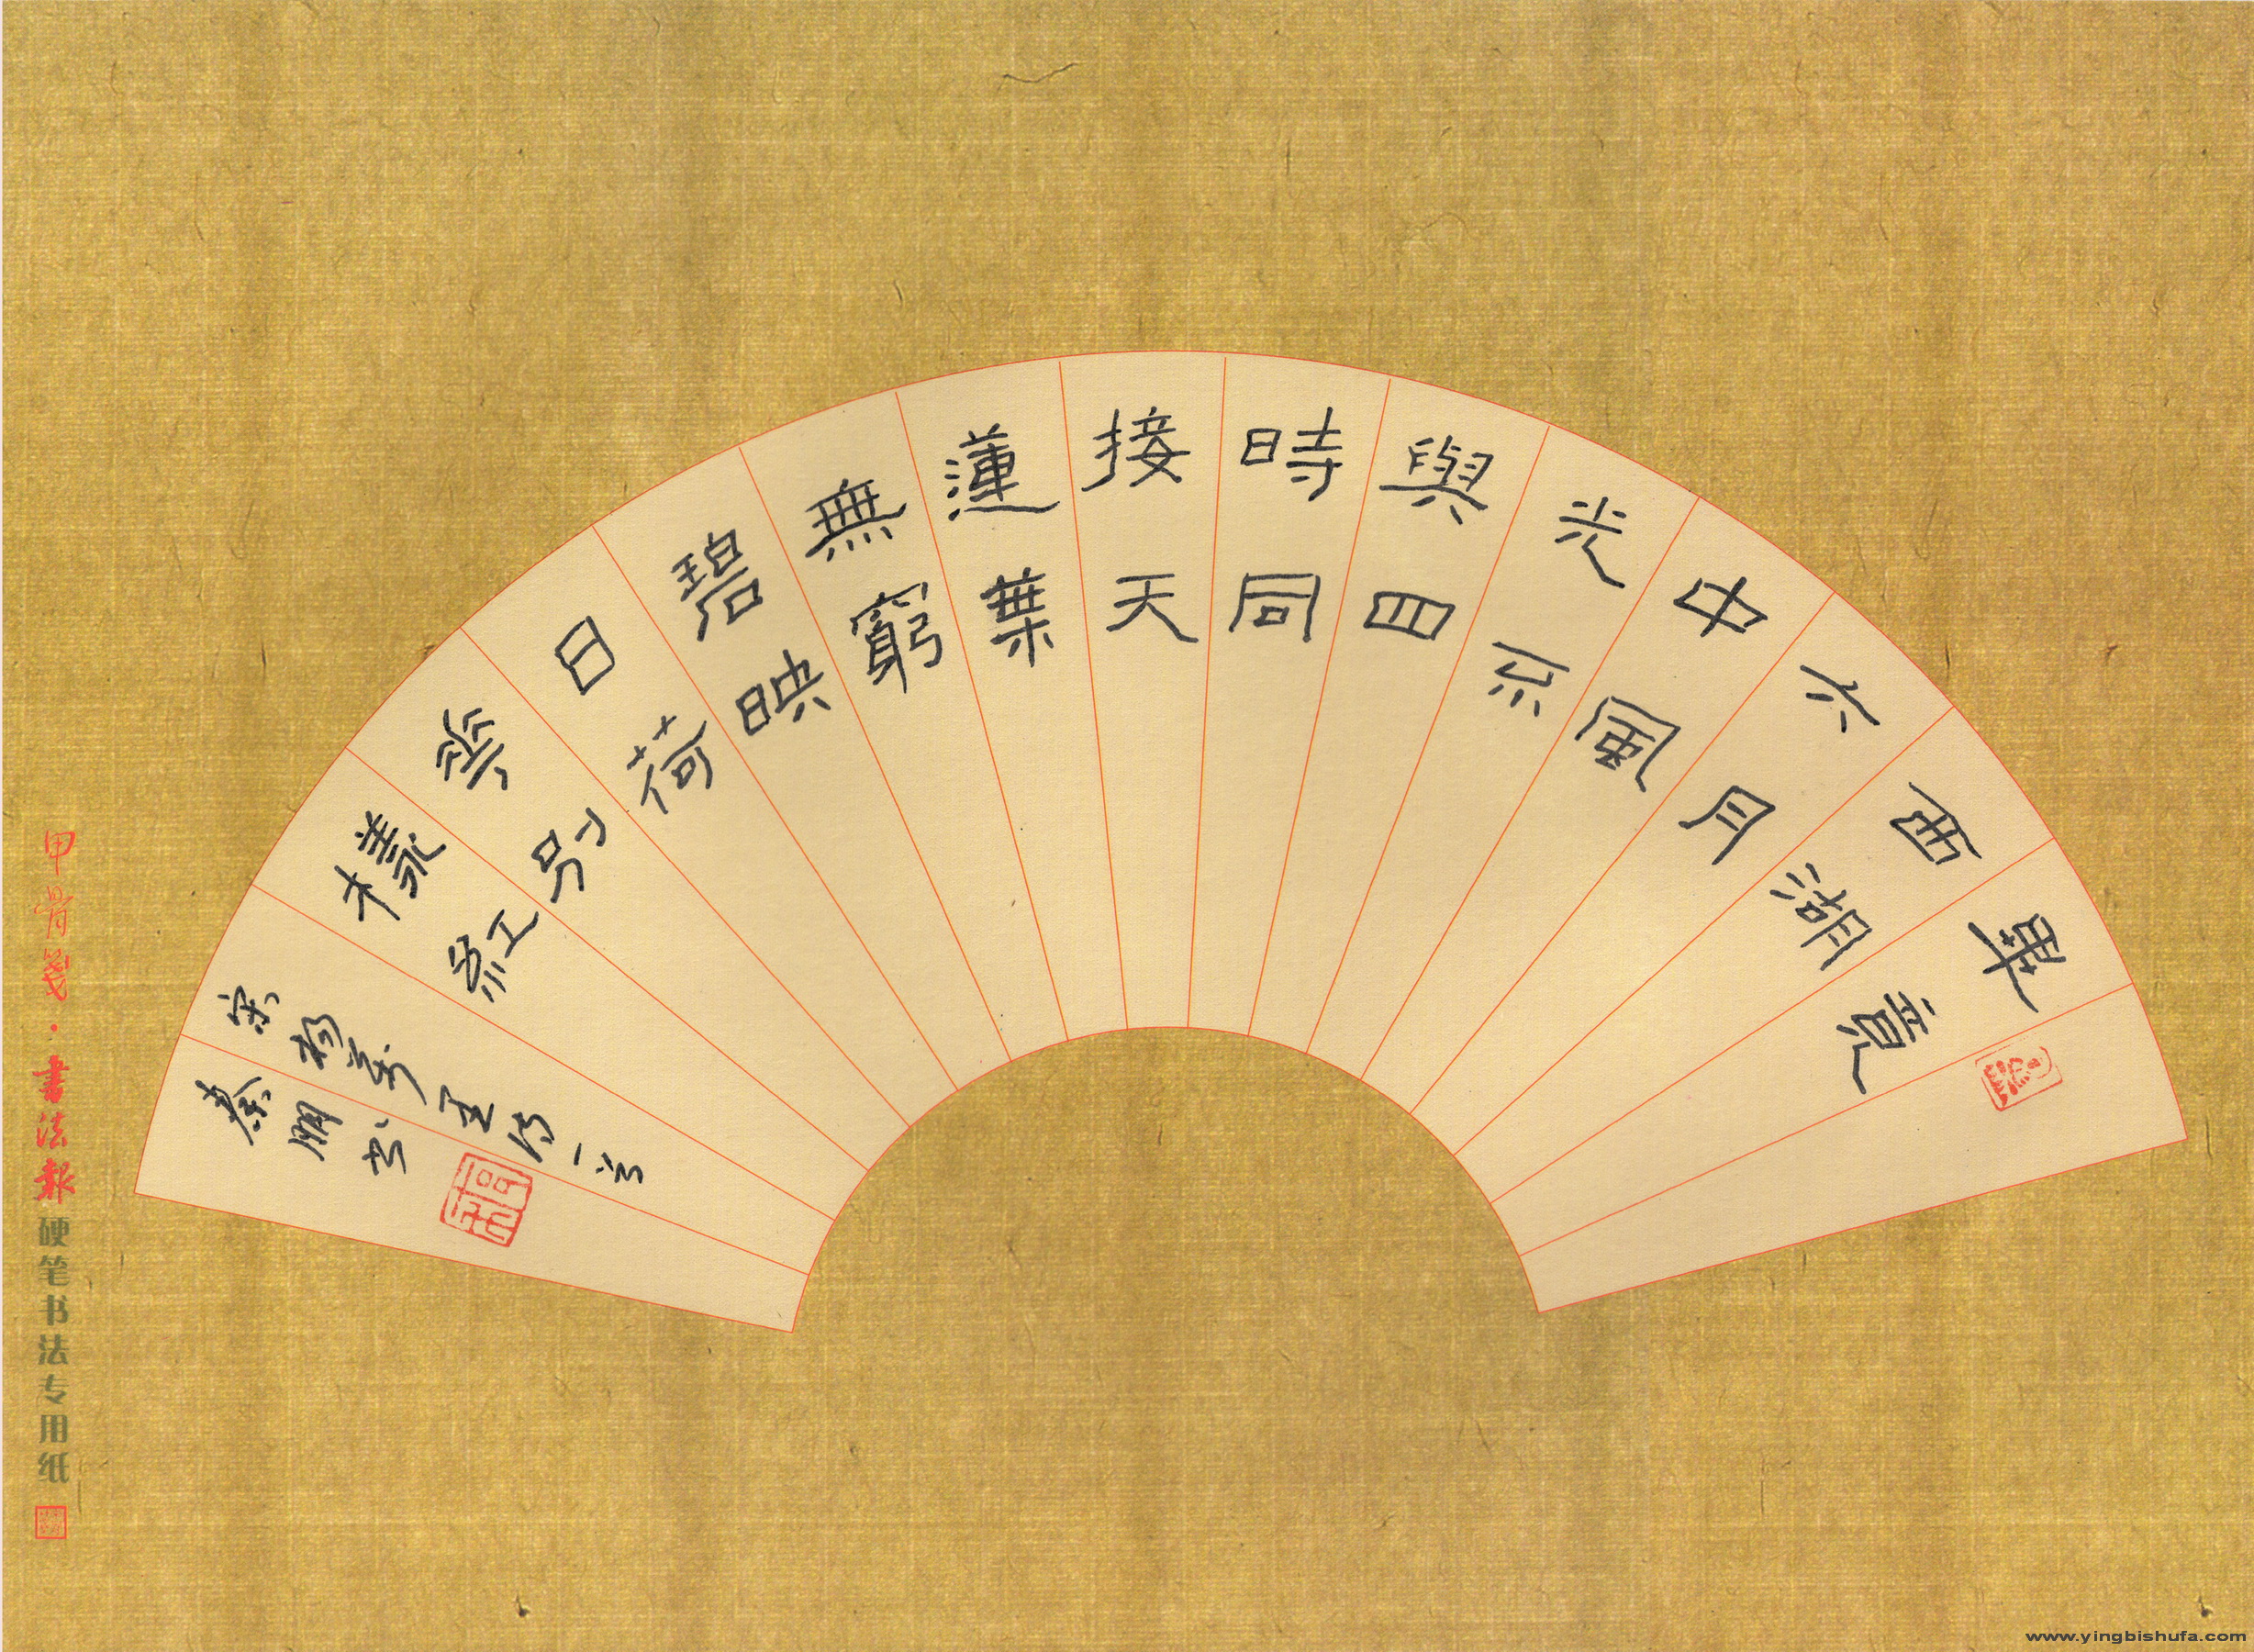 畢竟
西湖
六月
中風
光不
與四
時同
接天
蓮葉
無窮
碧映
日荷
華別
樣紅
宋楊萬里詩一首
秦朋书
甲骨箋·書法報硬笔书法专用纸
www.yingbishufa.com